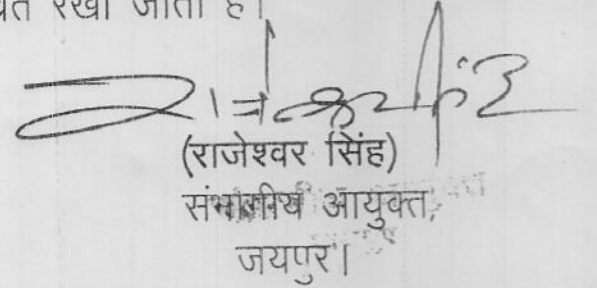 रखा जाता है।
(राजेश्वर सिंह)
संभागीय आयुक्त,
जयपुर।